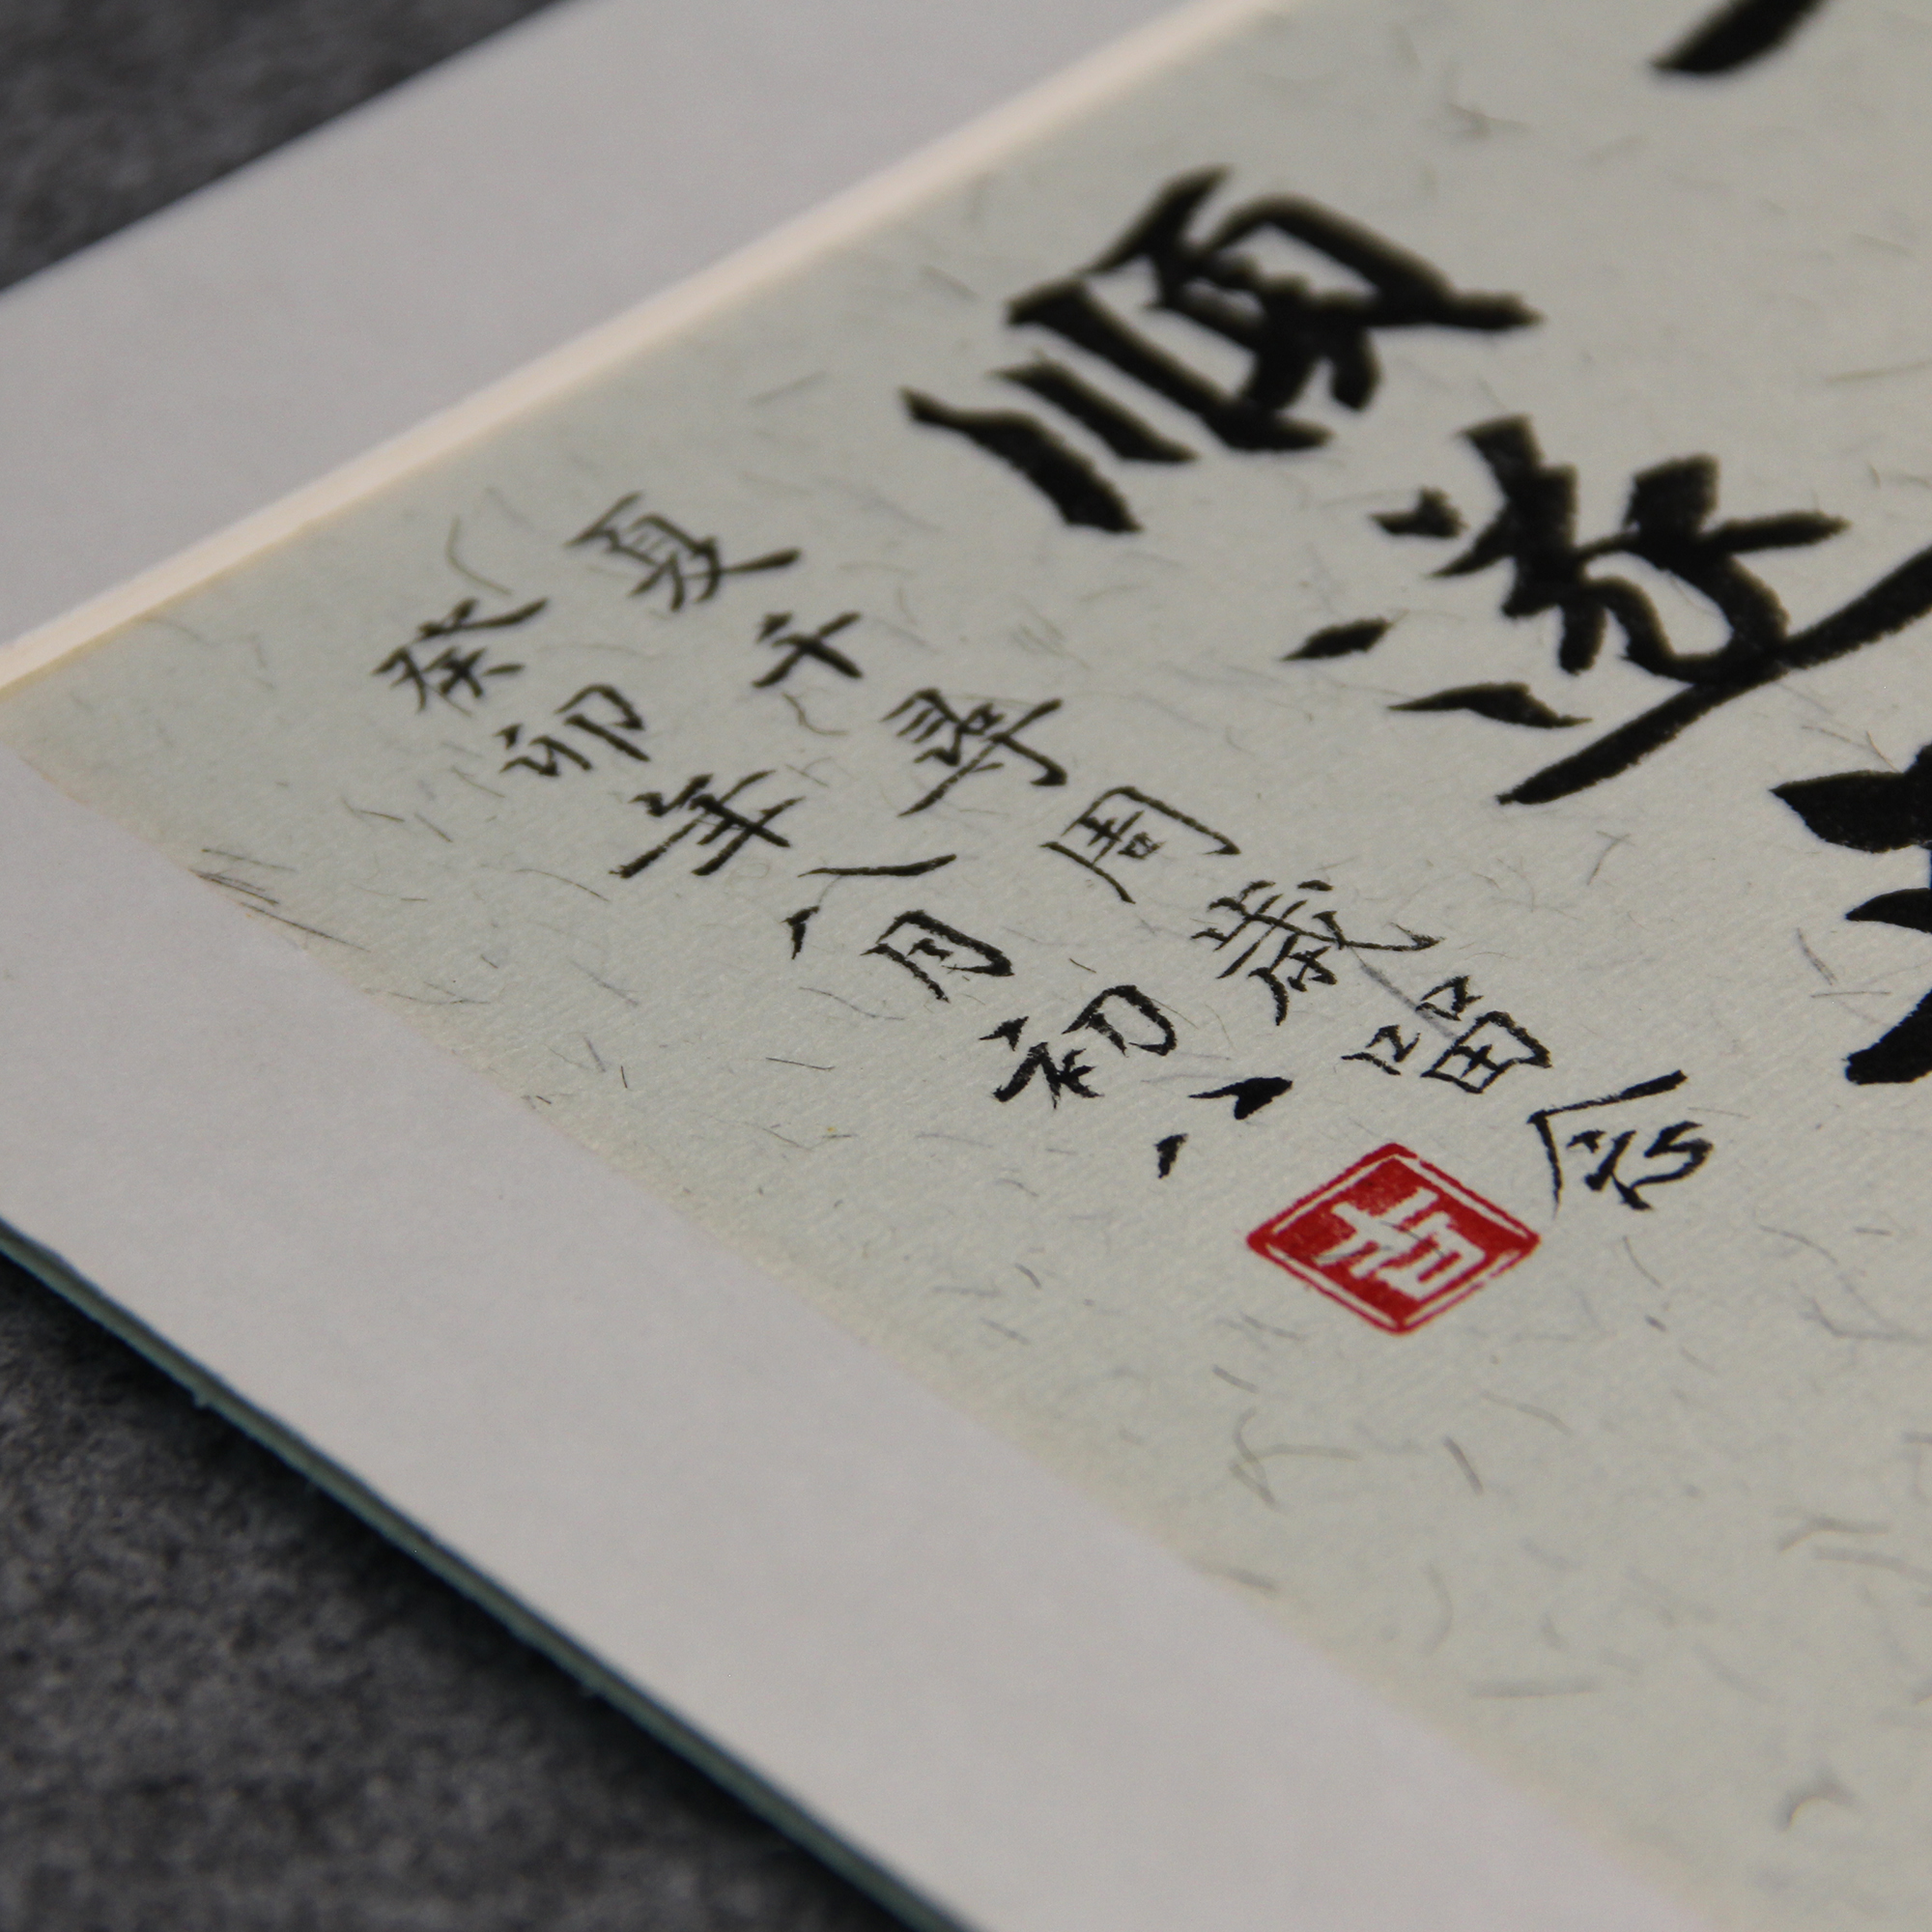 順遂
夏千學周歲留念
癸卯年八月初八